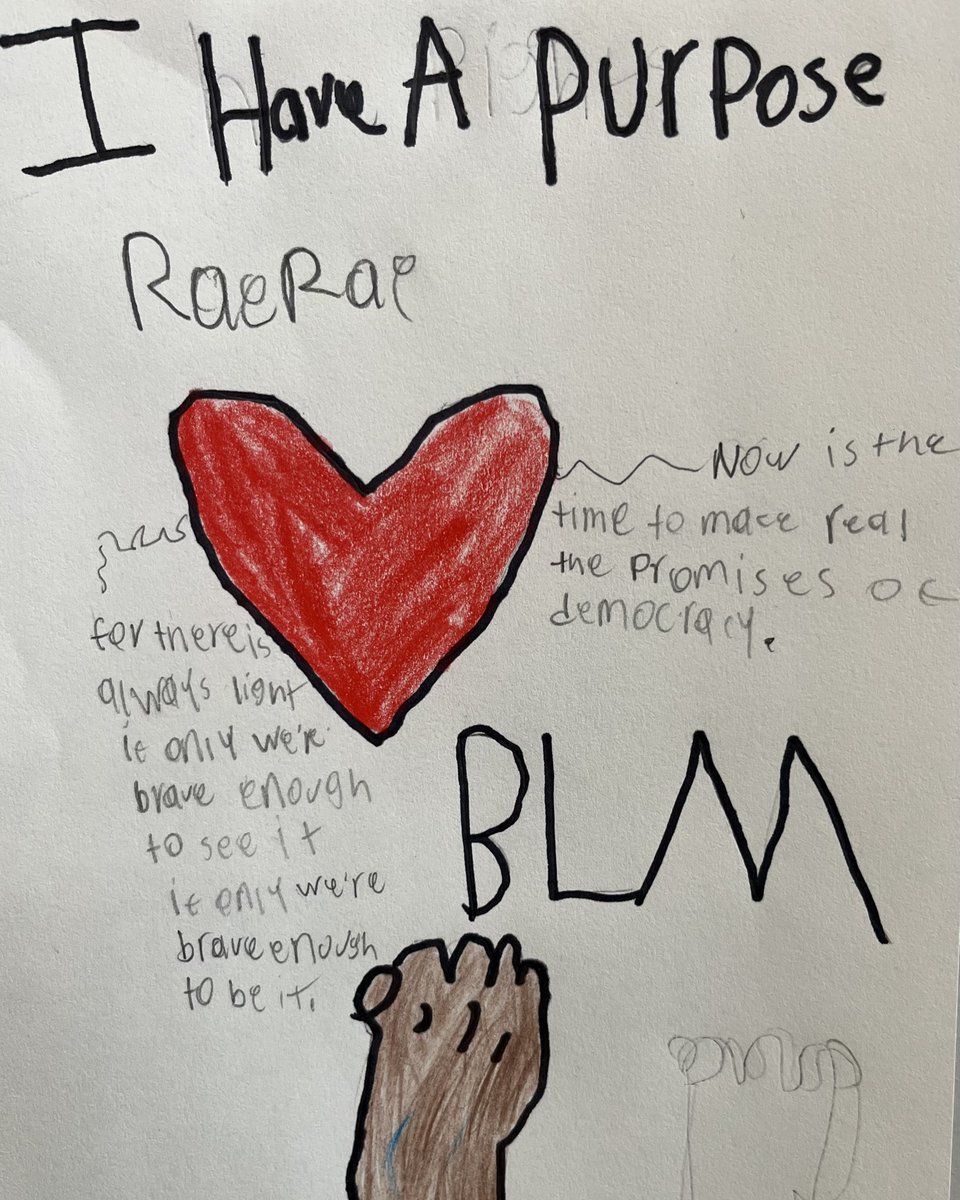 I Have A Purpose
RaeRae
Now is the
time to make real
the Promises of
democracy.
for there is
always light
if only we're
brave enough
to see it
if only we're
brave enough
to be it.
BLM